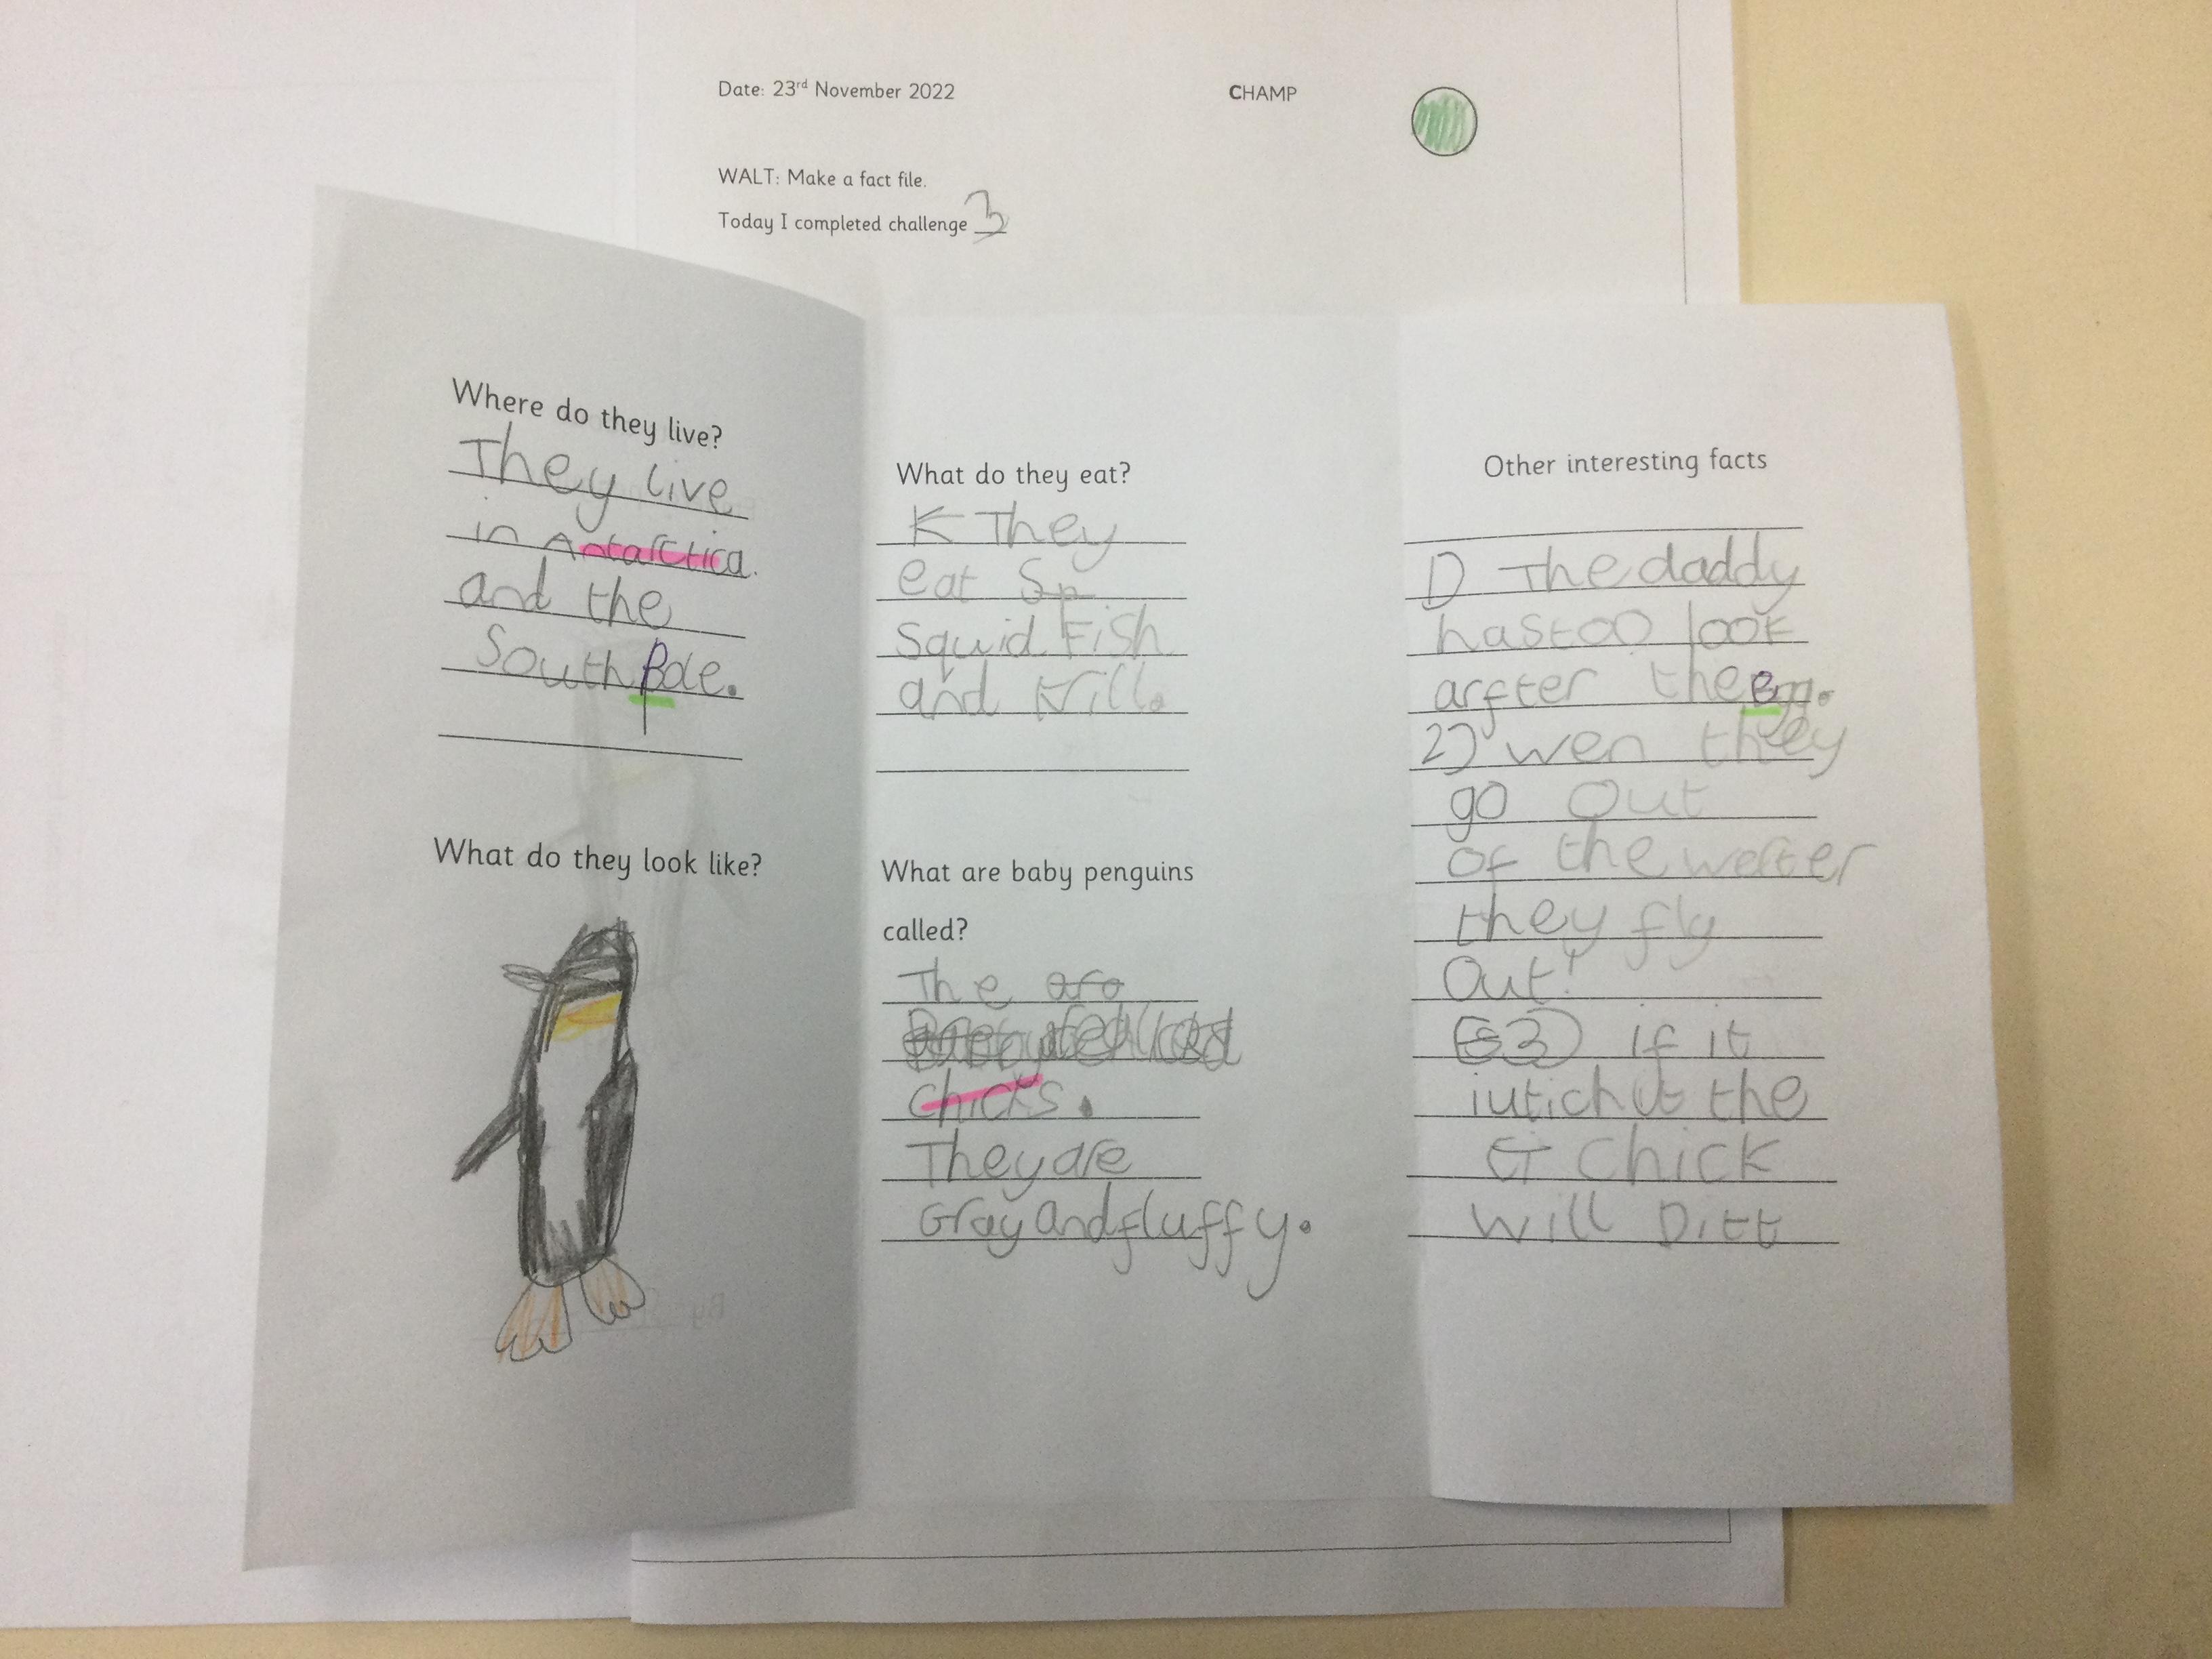 Date: 23rd November 2022
CHAMP
WALT: Make a fact file.
Today I completed challenge 3
Where do they live?
They live
in Antarctica.
and the
South Pole.
What do they look like?
What do they eat?
K They
eat Sp
squid Fish
and krill.
What are baby penguins
called?
The are
chicks.
They are
Gray and fluffy.
Other interesting facts
The daddy
has too look
arfter the egg.
2) wen they
go out
of the werter
they fly
Out!
3) if it
the
chick
will